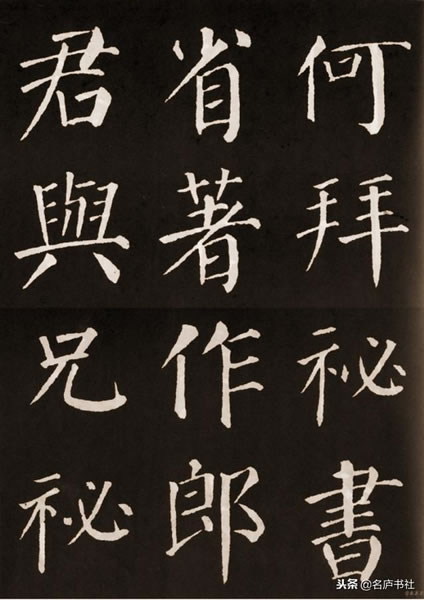 何拜祕書
省著作郎
君與兄祕
头条@名庐书社